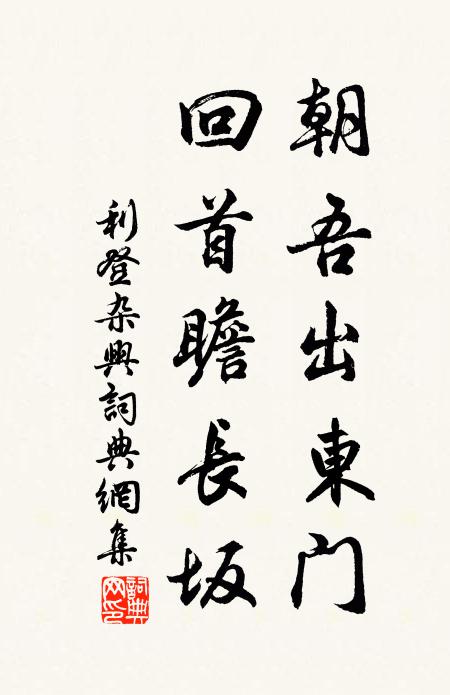 朝吾出東門
回首瞻長坂
利登杂興詞典網集
詞典
网印